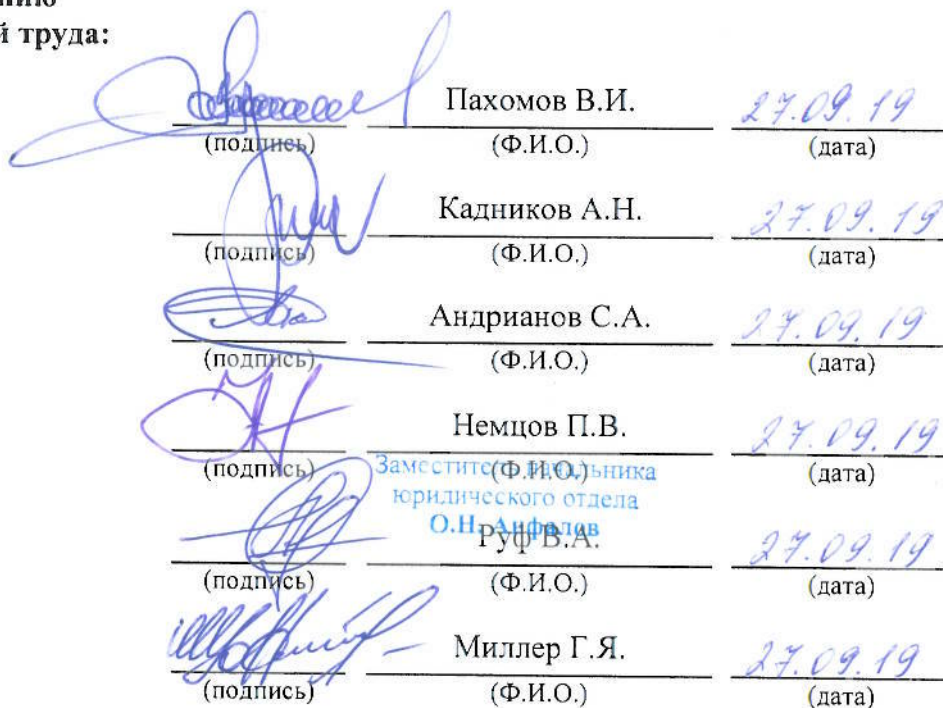 й труда:
Пахомов В.И. 27.09.19
(подпись) (Ф.И.О.) (дата)
Кадников А.Н. 27.09.19
(подпись) (Ф.И.О.) (дата)
Андрианов С.А. 27.09.19
(подпись) (Ф.И.О.) (дата)
Немцов П.В. 27.09.19
(подпись) (Ф.И.О.) (дата)
Заместитель начальника
юридического отдела
О.Н. Анфалов
Руф В.А. 27.09.19
(подпись) (Ф.И.О.) (дата)
Миллер Г.Я. 27.09.19
(подпись) (Ф.И.О.) (дата)